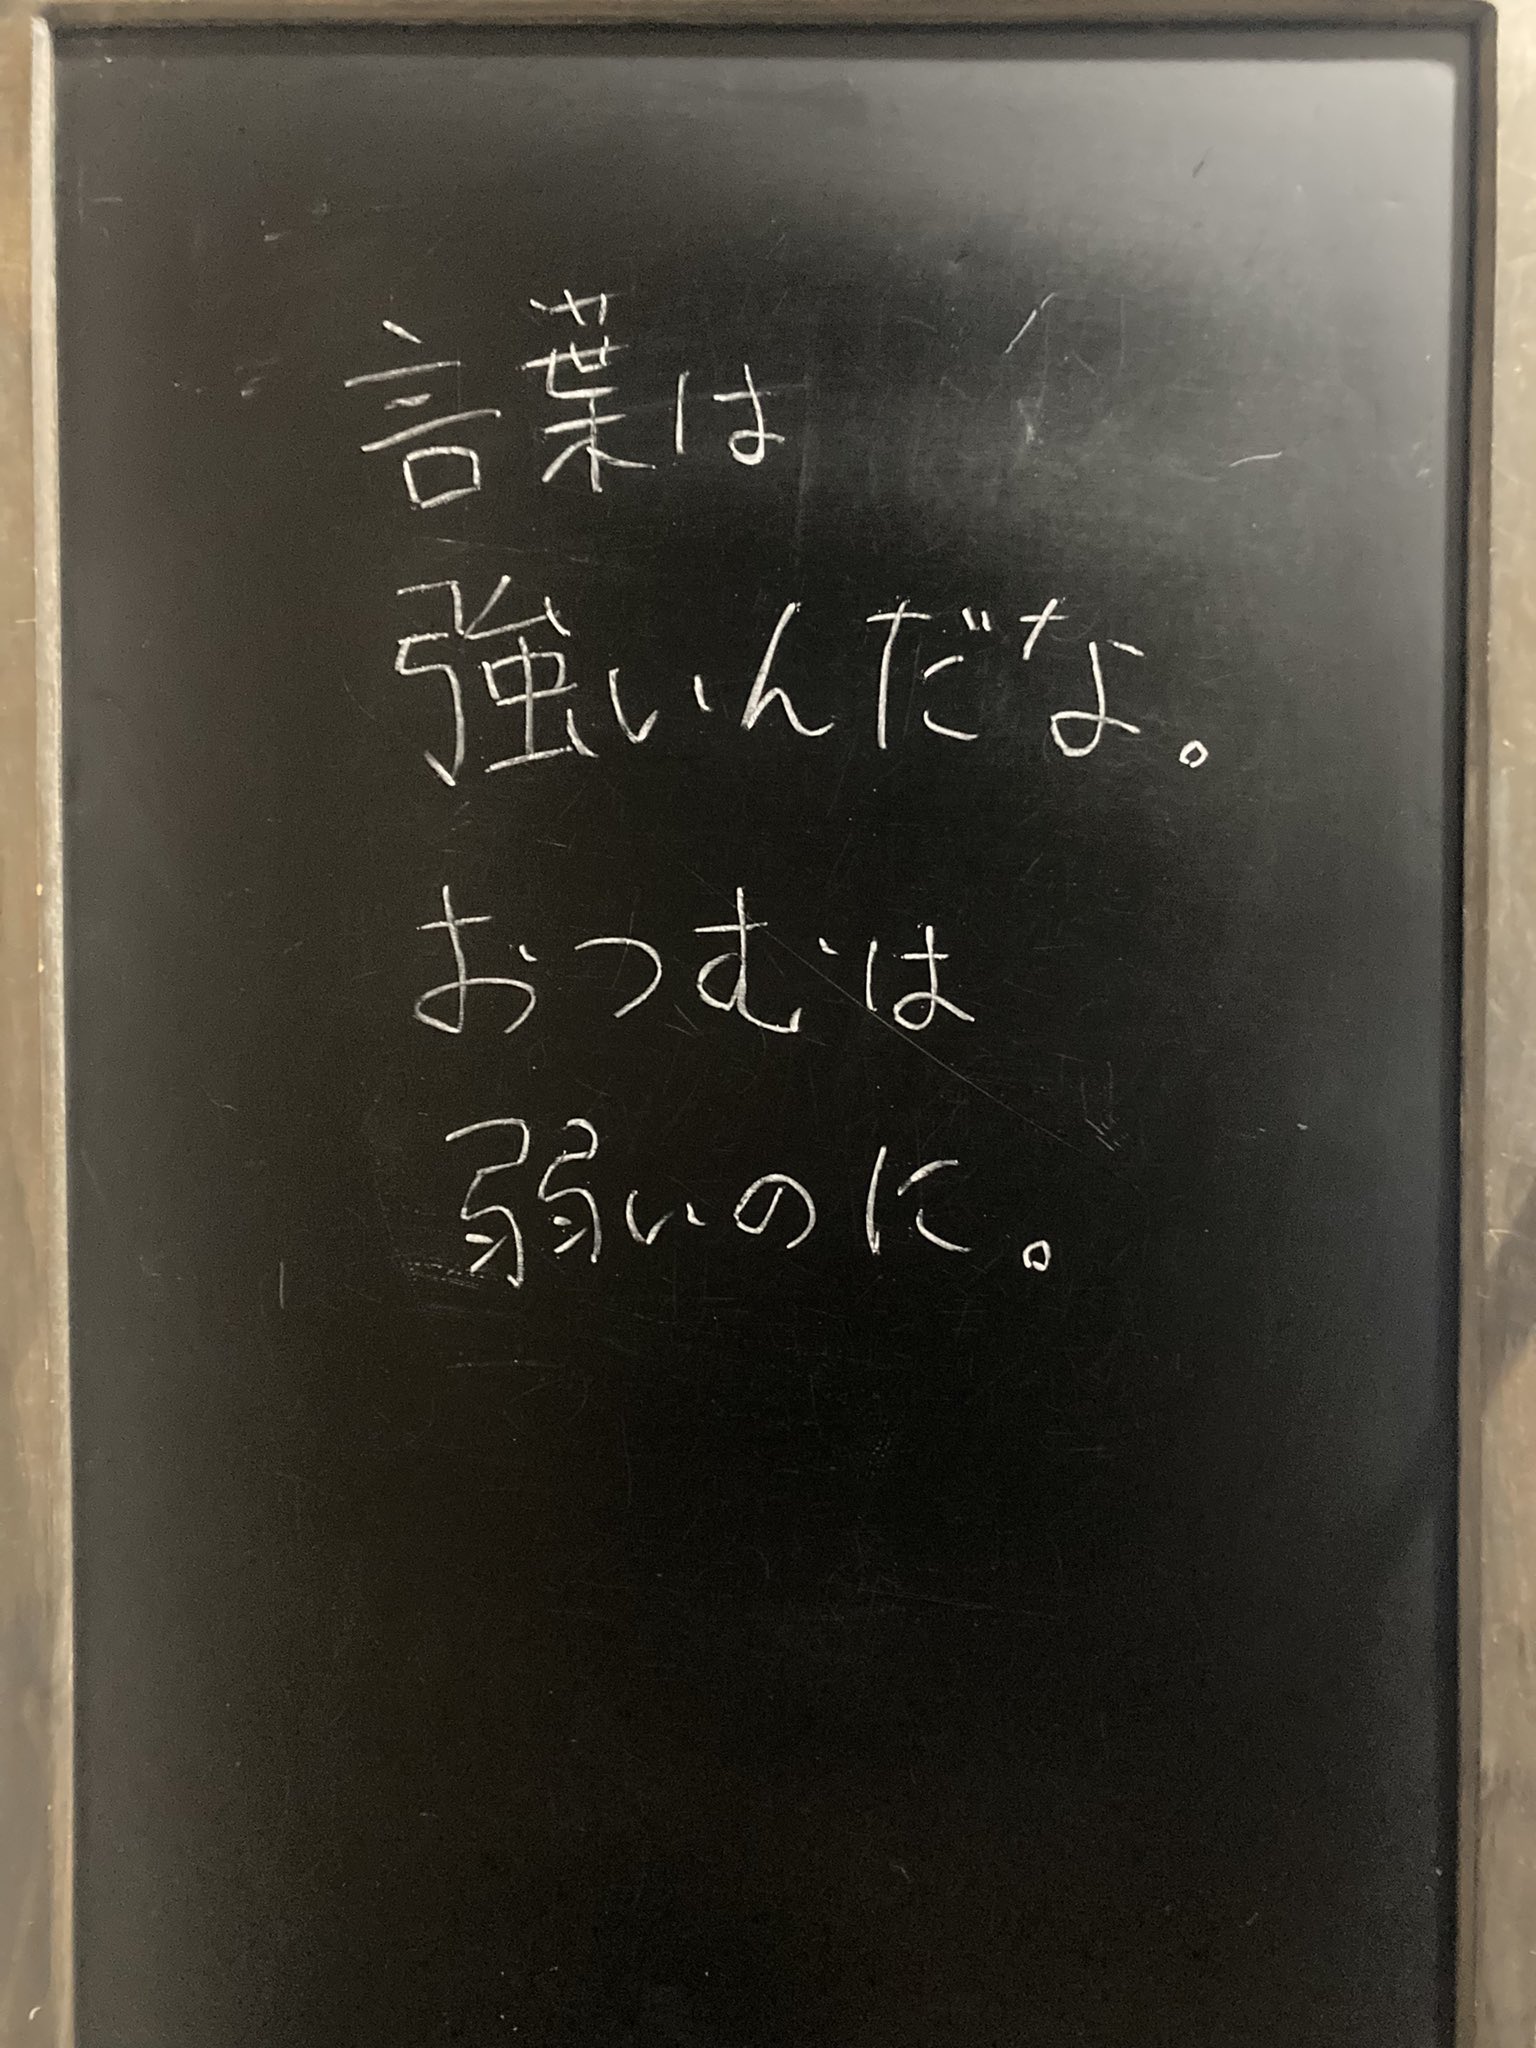 言葉は
強いんだな。
おつむは
弱いのに。